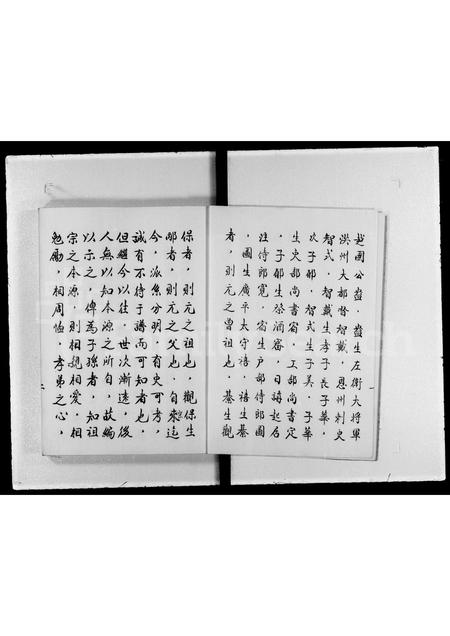 越國公盎．盎生左衛大將軍
洪州大都督智戴．恩州刺史
智式．智戴生孝子長子華．
次子部．智式生子美．子華
生吏部尚書宿．工部尚書定
．子部生祭酒審．日講起居
注侍郎寬．宿生戶部侍郎圖
．圖生廣平太守禧．禧生蓁
者．則元之曾祖也．蓁生觀
保者．則元之祖也．觀保生
邴者．則元之父也．自來迄
今．派系分明．有史可考．
誠有不待于譜而可知者也．
但繼今以往．世次漸遠．後
人無以知本源之所自．故編
以示之．俾為子孫者．知祖
宗之本源．則相親相愛．相
勉勵．相周恤．孝弟之心．